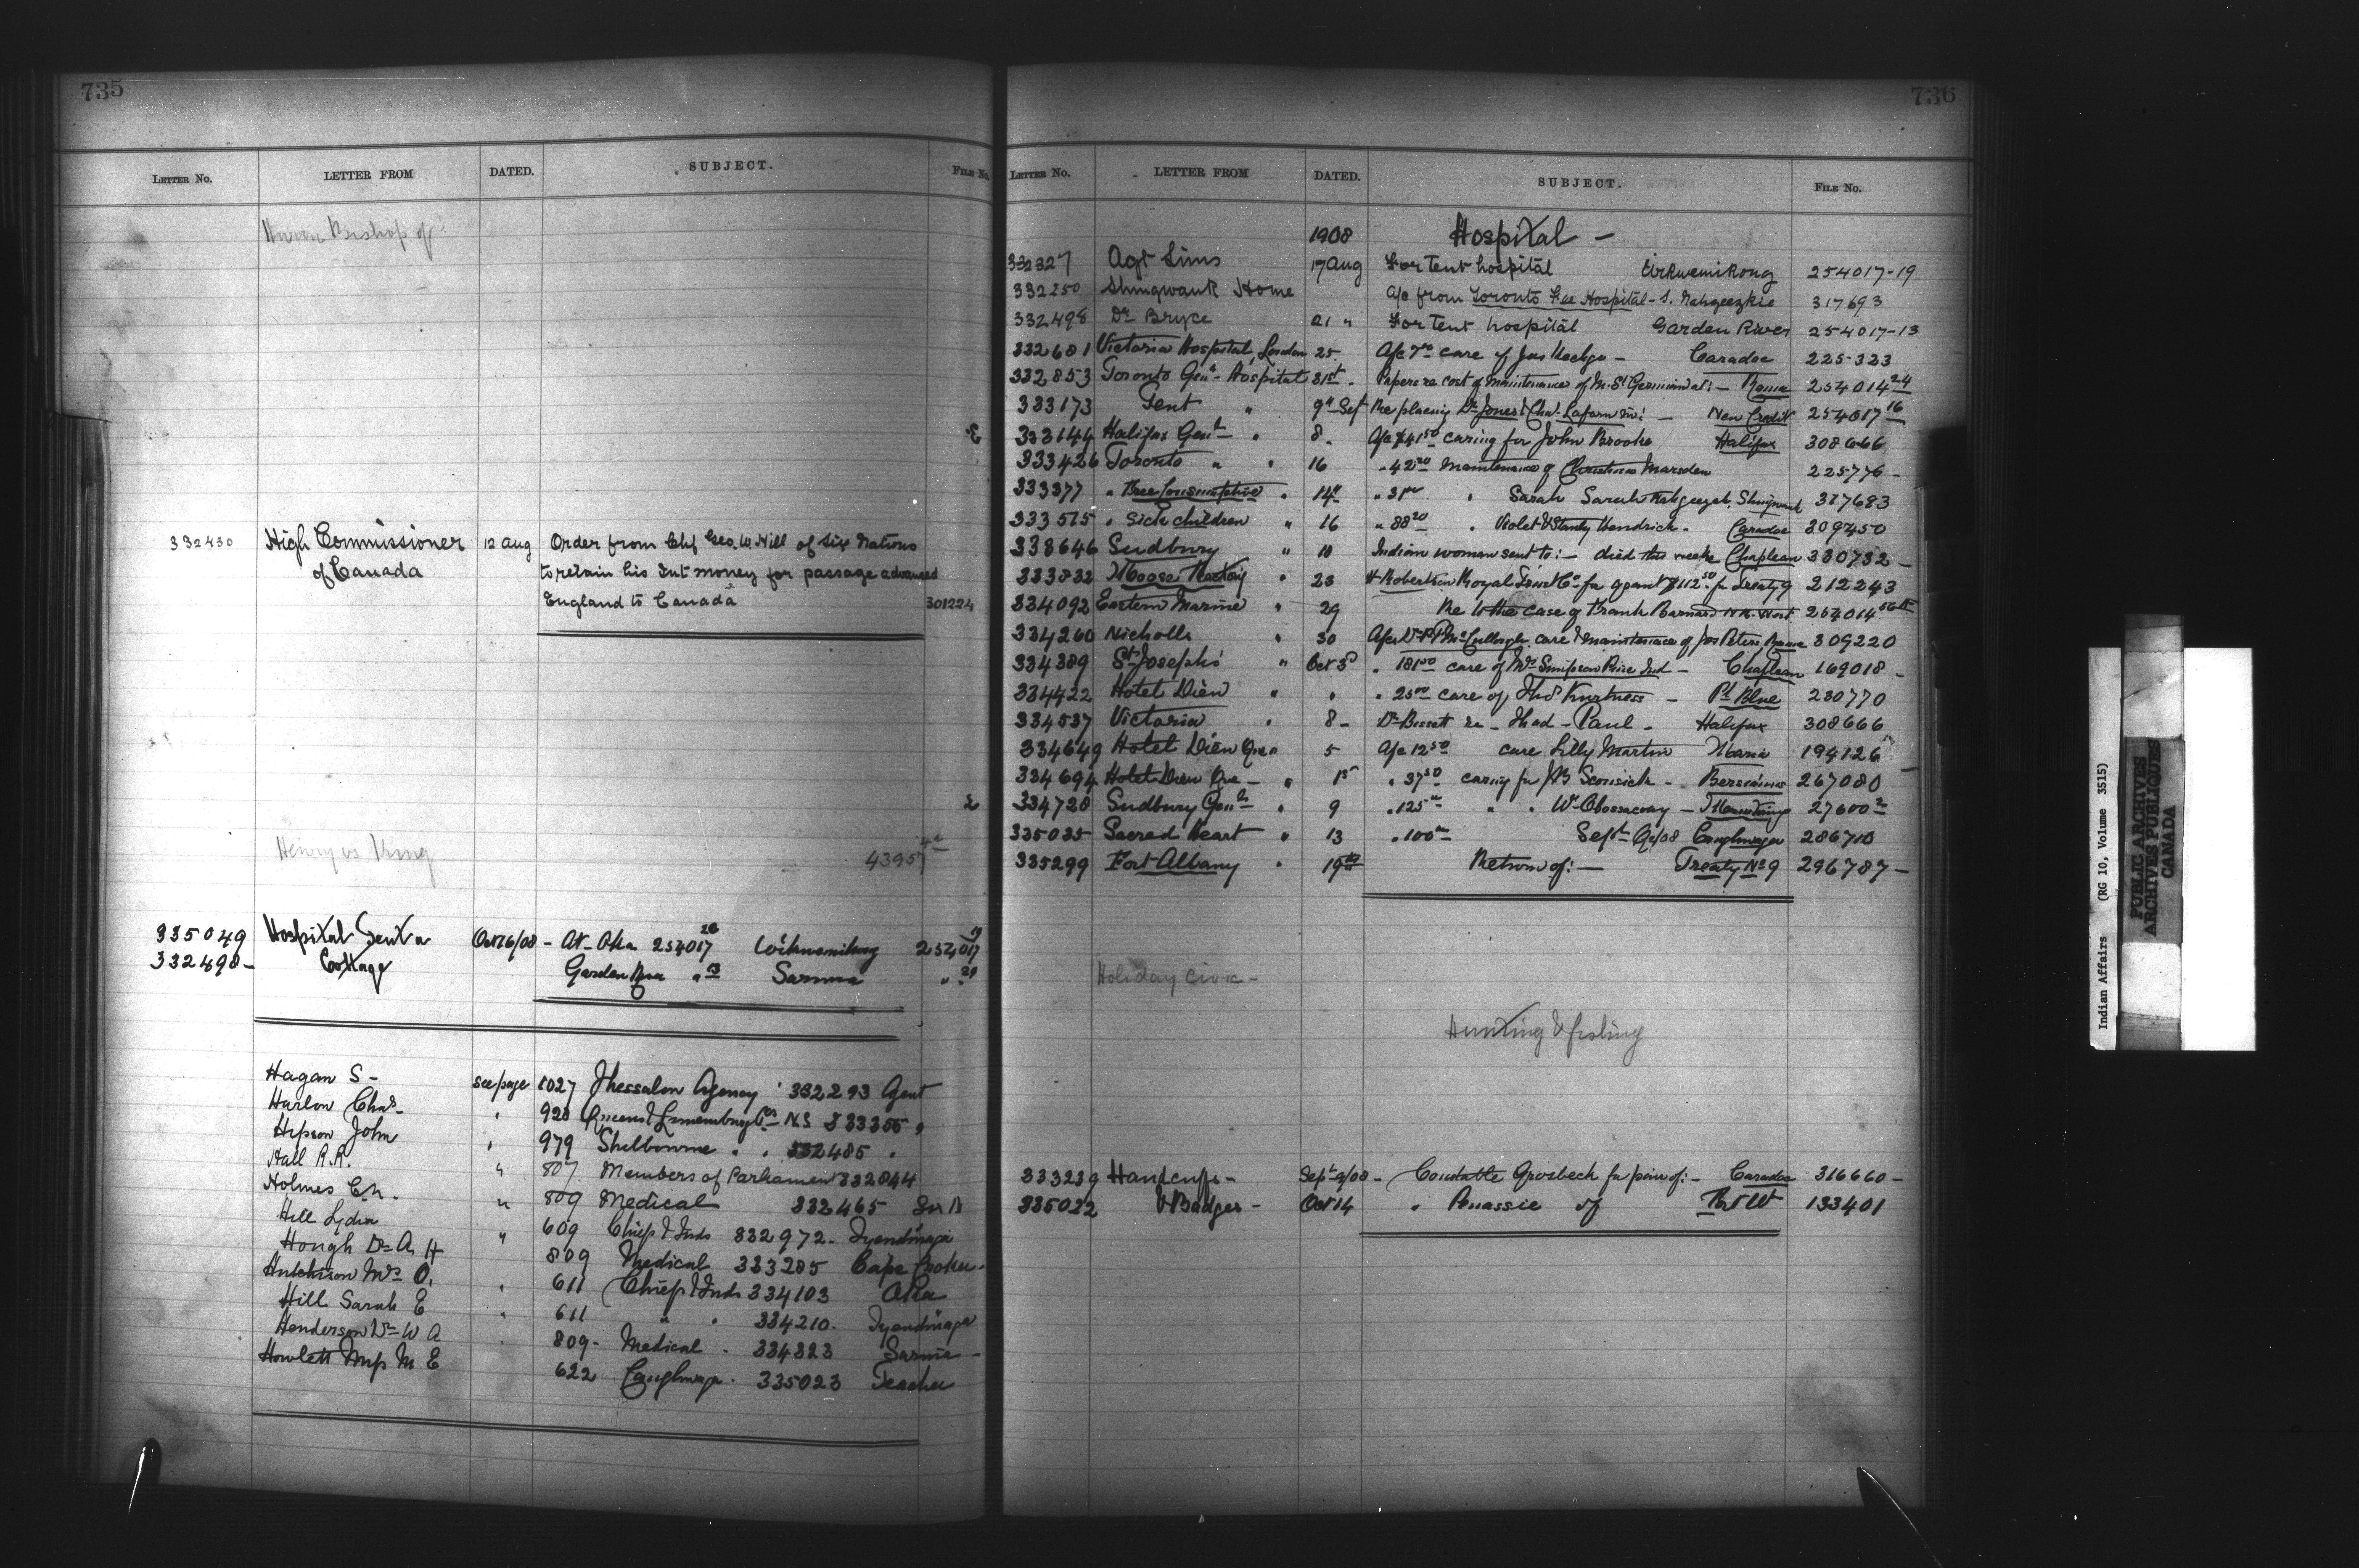 735
LETTER No. LETTER FROM DATED. SUBJECT. FILE No.
Huron Bishop of
332430 High Commissioner 12 Aug Order from Chf Geo. W. Hill of Six Nations
of Canada to retain his Int money for passage advanced
England to Canada 301224
Henry vs King 4395
335049 Hospital Tent a Oct 16/08 - At Aka 254017 Wikwemikong 254017 19
332498 - Cottage Garden River " 13 Sarnia " 29
Hagan S - see page 1027 Thessalon Agency 332293 Agent
Harlow Chas. " 928 Queens & Lunenburg Cos N.S 333355 "
Hipson John " 979 Shelbourne " " 332485 "
Hall R.R. " 807 Members of Parliament 332844
Holmes C.N. " 809 Medical 332465
Hill Lydia 609 Chiefs & Inds 332972 - Tyendinaga
Hough Dr A H " 809 Medical 333285 Cape Croker -
Hutchison Mrs O. 611 Chiefs & Inds 334103 Oka
Hill Sarah E " 611 " " 334210 - Tyendinaga
Henderson Dr W A 809 - Medical - 334323 Sarnia -
Howlett Miss M E 622 Caughnawaga - 335023 Teacher
736
LETTER No. LETTER FROM DATED. SUBJECT. FILE No.
1908 Hospital -
332327 Agt Sims 17 Aug For Tent hospital Wikwemikong 254017-19
332250 Shingwauk Home A/c from Toronto Free Hospital - S. 317693
332498 Dr Bryce 21 " For Tent hospital Garden River 254017-13
332681 Victoria Hospital, London 25. A/c 7 00 care of Jas - Caradoc 225323
332853 Toronto Genl - Hospital 31st - Papers re cost of maintenance of M. St Germain at: - Rama 254014 24
333173 Tent " 9" Sept Re placing Dr Jones & Cha. in: - New Credit 254017 16
333144 Halifax Genl " 8 - A/c $41 50 caring for John Brooks Halifax 308666
333426 Toronto " " 16 " 42 20 maintenance of Christina Marsden 225776 -
333377 " Free Consumptive " 14" " 31 00 " Sarah 317693
333515 " Sick children " 16 " 88 20 " Violet & Stanly Hendrick - Caradoc 309450
333646 Sudbury " 18 Indian woman sent to: - died this week Chapleau 330732 -
333832 Moose Factory " 23 H Robertson Royal Trust Co for grant $112 50 for Treaty 9 212243
334092 Eastern Marine " 29 Re to the case of Frank Barnard 254014
334260 Nicholls " 30 A/c Dr McCullough care & maintenance of Jos Peters Rama 309220
334389 St Joseph's " Oct 3d " 181 00 care of Mrs Simpson Rice Ind - Chapleau 169018 -
334422 Hotel Dieu " " " 25 00 care of Thos Kurtness - Pt Blue 230770
334537 Victoria " 8 - Dr Bissett re - Thad - Paul - Halifax 308666
334649 Hotel Dieu Que " 5 A/c 12 50 care Lilly Martin Maria 194126
334694 Hotel Dieu Que - " 15 " 37 50 caring for J B - Bersimis 267080
334728 Sudbury Genl " 9 " 125 00 " " Wm - 27600-2
335035 Sacred Heart " 13 " 100 00 Sept Qr/08 Caughnawaga 286710
335299 Fort Albany " 19th Return of: - Treaty No 9 296787 -
Holiday Civic -
Hunting & fishing
333239 Handcuffs - Sept 9/08 - Constable Grosbeck for pair of: - Caradoc 316660 -
335022 & Badges - Oct 14 " Anassie of 133401
Indian Affairs (RG 10, Volume 3515)
PUBLIC ARCHIVES
ARCHIVES PUBLIQUES
CANADA